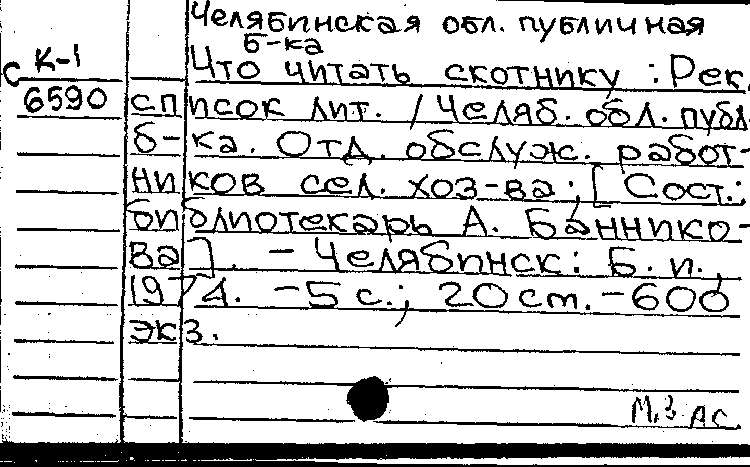 Челябинская обл. публичная
б-ка
с К-1
6590
Что читать скотнику : Рек.
список лит. / Челяб. обл. публ.
б-ка. Отд. обслуж. работ-
ников сел. хоз-ва; [ Сост.:
библиотекарь А. Баннико-
ва]. - Челябинск: Б. и.,
1974. - 5 с.; 20 см. - 600
экз.
М.З. АС